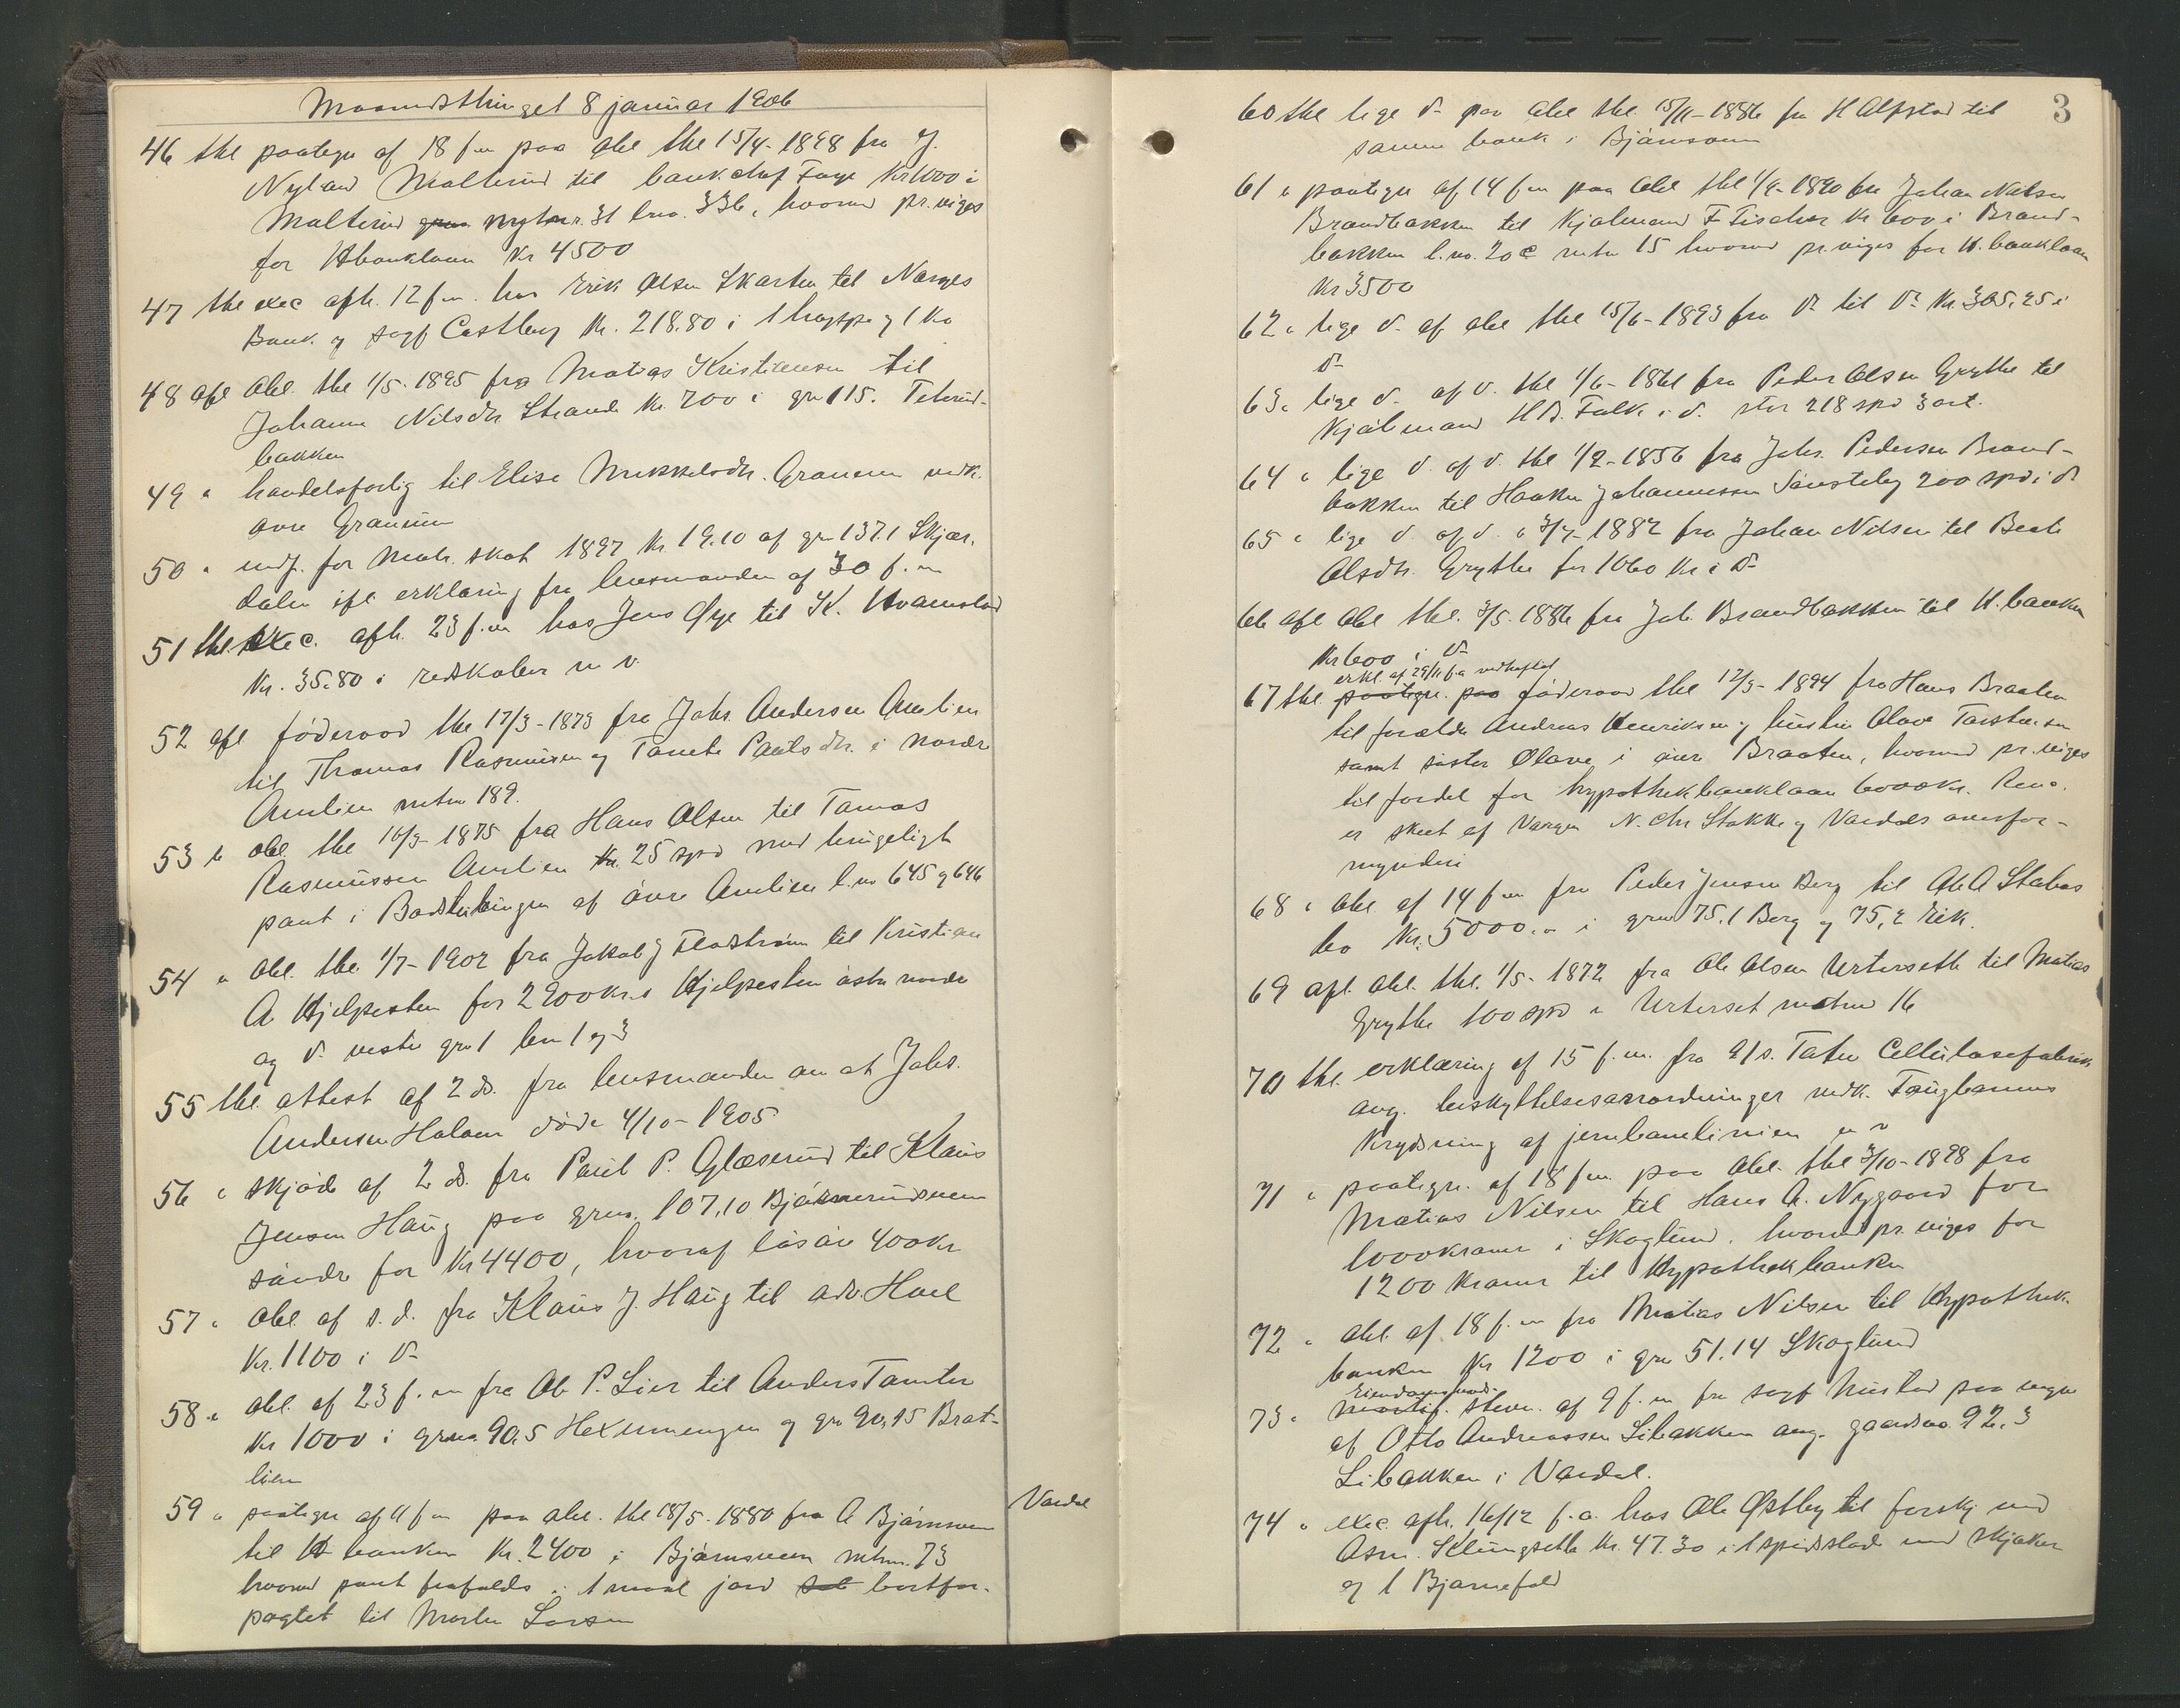 Maanedsthinget 8 januar 1906
46 thl paategn af 18 f.m paa obl thl 15/4-1898 fra J.
Nyland Malterud til bankchef Faye Kr 1000 i
Malterud mytn r. 31 lno. 33b, hvorved pr. viges
for Hbanklaan Kr 4500
47 thl exec afh. 12 f.m. hos Erik Olsen Skarten til Norges
Bank og sagf Castberg Kr. 218.80 i 1 hoppe og 1 Ko
48 afl obl. thl 1/5. 1895 fra Matias Kristiansen til
Johanne Nilsdtr Strande Kr. 700 i gn 115. Teterud-
bakken
49 " handelsforlig til Elise Mikkelsdtr. Granum vedk.
øvre Granum
50 " udf. for matr. skat 1897 Kr. 19.10 af gn 137.1 Skjær-
dalen ifl erklæring fra lensmanden af 30 f.m
51 thl. exec. afh. 23 f.m hos Jens Øye til K. Hvamstad
Kr. 35.80 i redskaber m v.
52 afl føderaad thl 17/3-1873 fra Johs Andersen Amlien
til Thomas Rasmussen og Tomete Paulsdtr. i nordre
Amlien mtrn 189.
53 " obl thl 16/3-1875 fra Hans Olsen til Tomas
Rasmussen Amlien 25 spd med tingeligt
pant i Badstubingen af øvre Amlien l.no 645 og 646
54 " obl. thl 1/7-1902 fra Jakob J Fladstrøm til Kristian
A Hjelpesten for 2900 Kr. i Hjelpesten østre nordre
og d. vestre gn 1 bn 1 og 3
55 thl. attest af 2 ds. fra lensmanden om at Johs.
Andersen Holom døde 4/10-1905
56 " skjøde af 2 ds. fra Paul P. Glæserud til Klaus
Jensen Haug paa grno. 107,10 Bjørnerudsveen
søndre for Kr 4400, hvoraf løsøre 400 Kr
57 " obl. af s. d. fra Klaus J. Haug til adv. Hoel
Kr. 1100 i d-
58 " obl. af 23 f.m fra Ole P. Lier til Anders Tomter
Kr 1000 i grno. 90,5 Hexumengen og gn 90,15 Brat-
lien
59 " paategn af 11 f.m paa obl. thl 18/5. 1880 fra A Bjørnsveen
til H banken Kr. 2400 i Bjørnsveen mtrn. 73
hvorved pant frafaldes i 1 maal jord bortfor-
pagtet til Marten Larsen
Vardal
3
60 thl lige d- paa obl thl 15/11-1886 fra H Alfstad til
samme bank i Bjørnsveen
61 " paategn af 14 f.m paa obl thl 1/9-1890 fra Johan Nilsen
Brandbakken til Kjøbmand F Fischer Kr 600 i Brand-
bakken l.no. 20c mtrn 15 hvorved pr. viges for H. banklaan
Kr 3500
62 " lige d- af obl thl 15/6-1893 fra d- til d- Kr. 305.25 i
d-
63 " lige d- af d. thl 1/6-1861 fra Peder Olsen Grythe til
Kjøbmand H B. Falk i d. stor 218 spd 3 ort.
64 " lige d. af d. thl 1/2-1856 fra Johs. Pedersen Brand-
bakken til Haaken Johannessen Sønsteby 200 spd i d
65 " lige d. af d. " 3/7-1882 fra Johan Nilsen til Beate
Olsdtr. Grythe for 1060 Kr i d-
66 afl obl thl. 3/5. 1886 fra Joh. Brandbakken til H. banken
Kr 600 i d-
erkl. af 29/11 f.a vedheftet
67 thl paategn. paa føderaad thl 12/3-1894 fra Hans Braaten
til forældre Andreas Henriksen og hustru Olave Torstensen
samt søster Olave i øvre Braaten, hvorved pr. viges
til fordel for hypothekbanklaan 6000 Kr. Reno.
er skeet af Vergen N. Chr Stokke og Vardals overfor-
mynderi
68 " obl. af 14 f.m fra Peder Jensen Berg til Ole A Stabos
bo Kr. 5000.00 i grno 75.1 Berg og 75,2 Eik.
69 afl. obl. thl. 1/5. 1872 fra Ole Olsen Urterseth til Matias
Grythe 100 spd i Urterset mtrn 16
70 thl. erklæring af 15 f.m. fra A/s. Toten Cellulosefabrik
ang. beskyttelsesanordninger vedk. Taugbanens
Krydsning af jernbanelinien m v
71 " paategn. af 18 f.m. paa obl. thl 3/10-1898 fra
Matias Nilsen til Hans A. Nygaard for
1000 kroner i Skoglund. hvorved pr. viges for
1200 Kroner til Hypothekbanken
72 " obl. af 18 f.m fra Matias Nilsen til Hypothek-
banken Kr 1200 i gn 51.14 Skoglund
Eiendoms
73 " stevn. af 9 f.m fra sagf Mustad paa vegne
af Otto Andreassen Libakken ang. gaardsno 92.3
Libakken i Vardal.
74 " exec. afh. 16/12 f.a. hos Ole Østby til forskj ved
Asm. Klungseth Kr. 47.30 i 1 spidsslæde med skjæker
og 1 Bjørnefeld